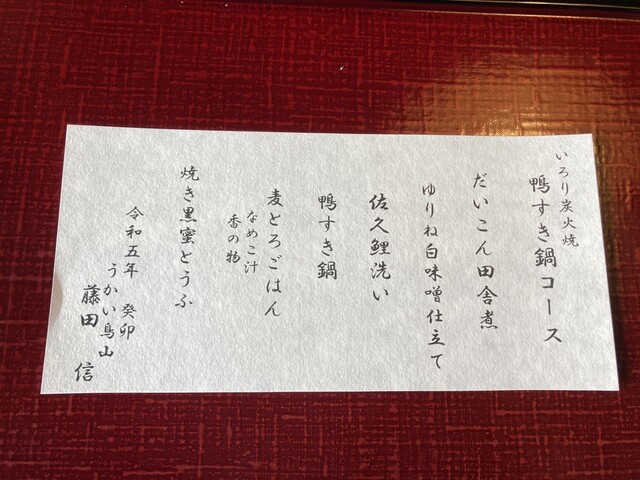 いろり炭火焼
鴨すき鍋コース
だいこん田舎煮
ゆりね白味噌仕立て
佐久鯉洗い
鴨すき鍋
麦とろごはん
なめこ汁
香の物
焼き黒蜜とうふ
令和五年 癸卯
うかい鳥山
藤田 信